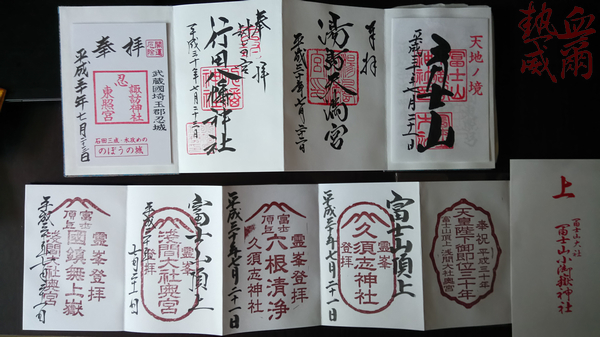 奉拝
開運
忍城
武蔵國埼玉郡忍城
忍
諏訪神社
東照宮
石田三成・水攻めの
のぼうの城
平成三十年七月二十二日
奉拝
行田八幡神社
平成三十年七月二十二日
奉拝
天満宮
平成三十年七月二十二日
天地ノ境
富士山
平成三十年七月二十一日
熱血
威爾
富士
頂上
霊峯登拝
國鎮無上嶽
浅間大社奥宮
平成三十年七月二十一日
富士山頂上
霊峯
登拝
浅間大社奥宮
平成三十年
七月二十一日
富士
頂上
霊峯登拝
六根清浄
久須志神社
平成三十年七月二十一日
富士山頂上
霊峯
登拝
久須志神社
平成三十年七月二十一日
奉祝 平成三十年
天皇陛下御即位三十年
富士山頂上浅間大社奥宮
上
冨士山小御嶽神社